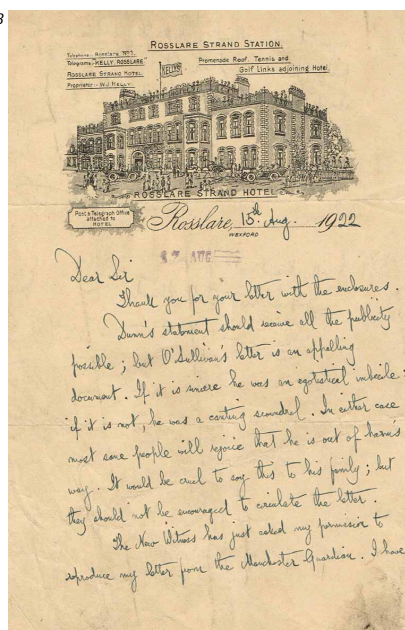 3
ROSSLARE STRAND STATION.
Telephone: Rosslare Nº 7.
Telegrams: "KELLY, ROSSLARE"
ROSSLARE STRAND HOTEL
Proprietor: W.J. KELLY.
KELLYS
Promenade Roof, Tennis and
Golf Links adjoining Hotel.
ROSSLARE STRAND HOTEL
Post & Telegraph Office
attached to
HOTEL
Rosslare, 15th Aug. 1922
WEXFORD
17 AUG
Dear Sir
Thank you for your letter with the enclosures.
Dunn's statement should receive all the publicity
possible; but O'Sullivan's letter is an appalling
document. If it is sincere he was an egotistical imbecile:
if it is not, he was a canting scoundrel. In either case
most sane people will rejoice that he is out of harm's
way. It would be cruel to say this to his family; but
they should not be encouraged to circulate the letter.
The New Witness has just asked my permission to
reproduce my letter from the Manchester Guardian. I have